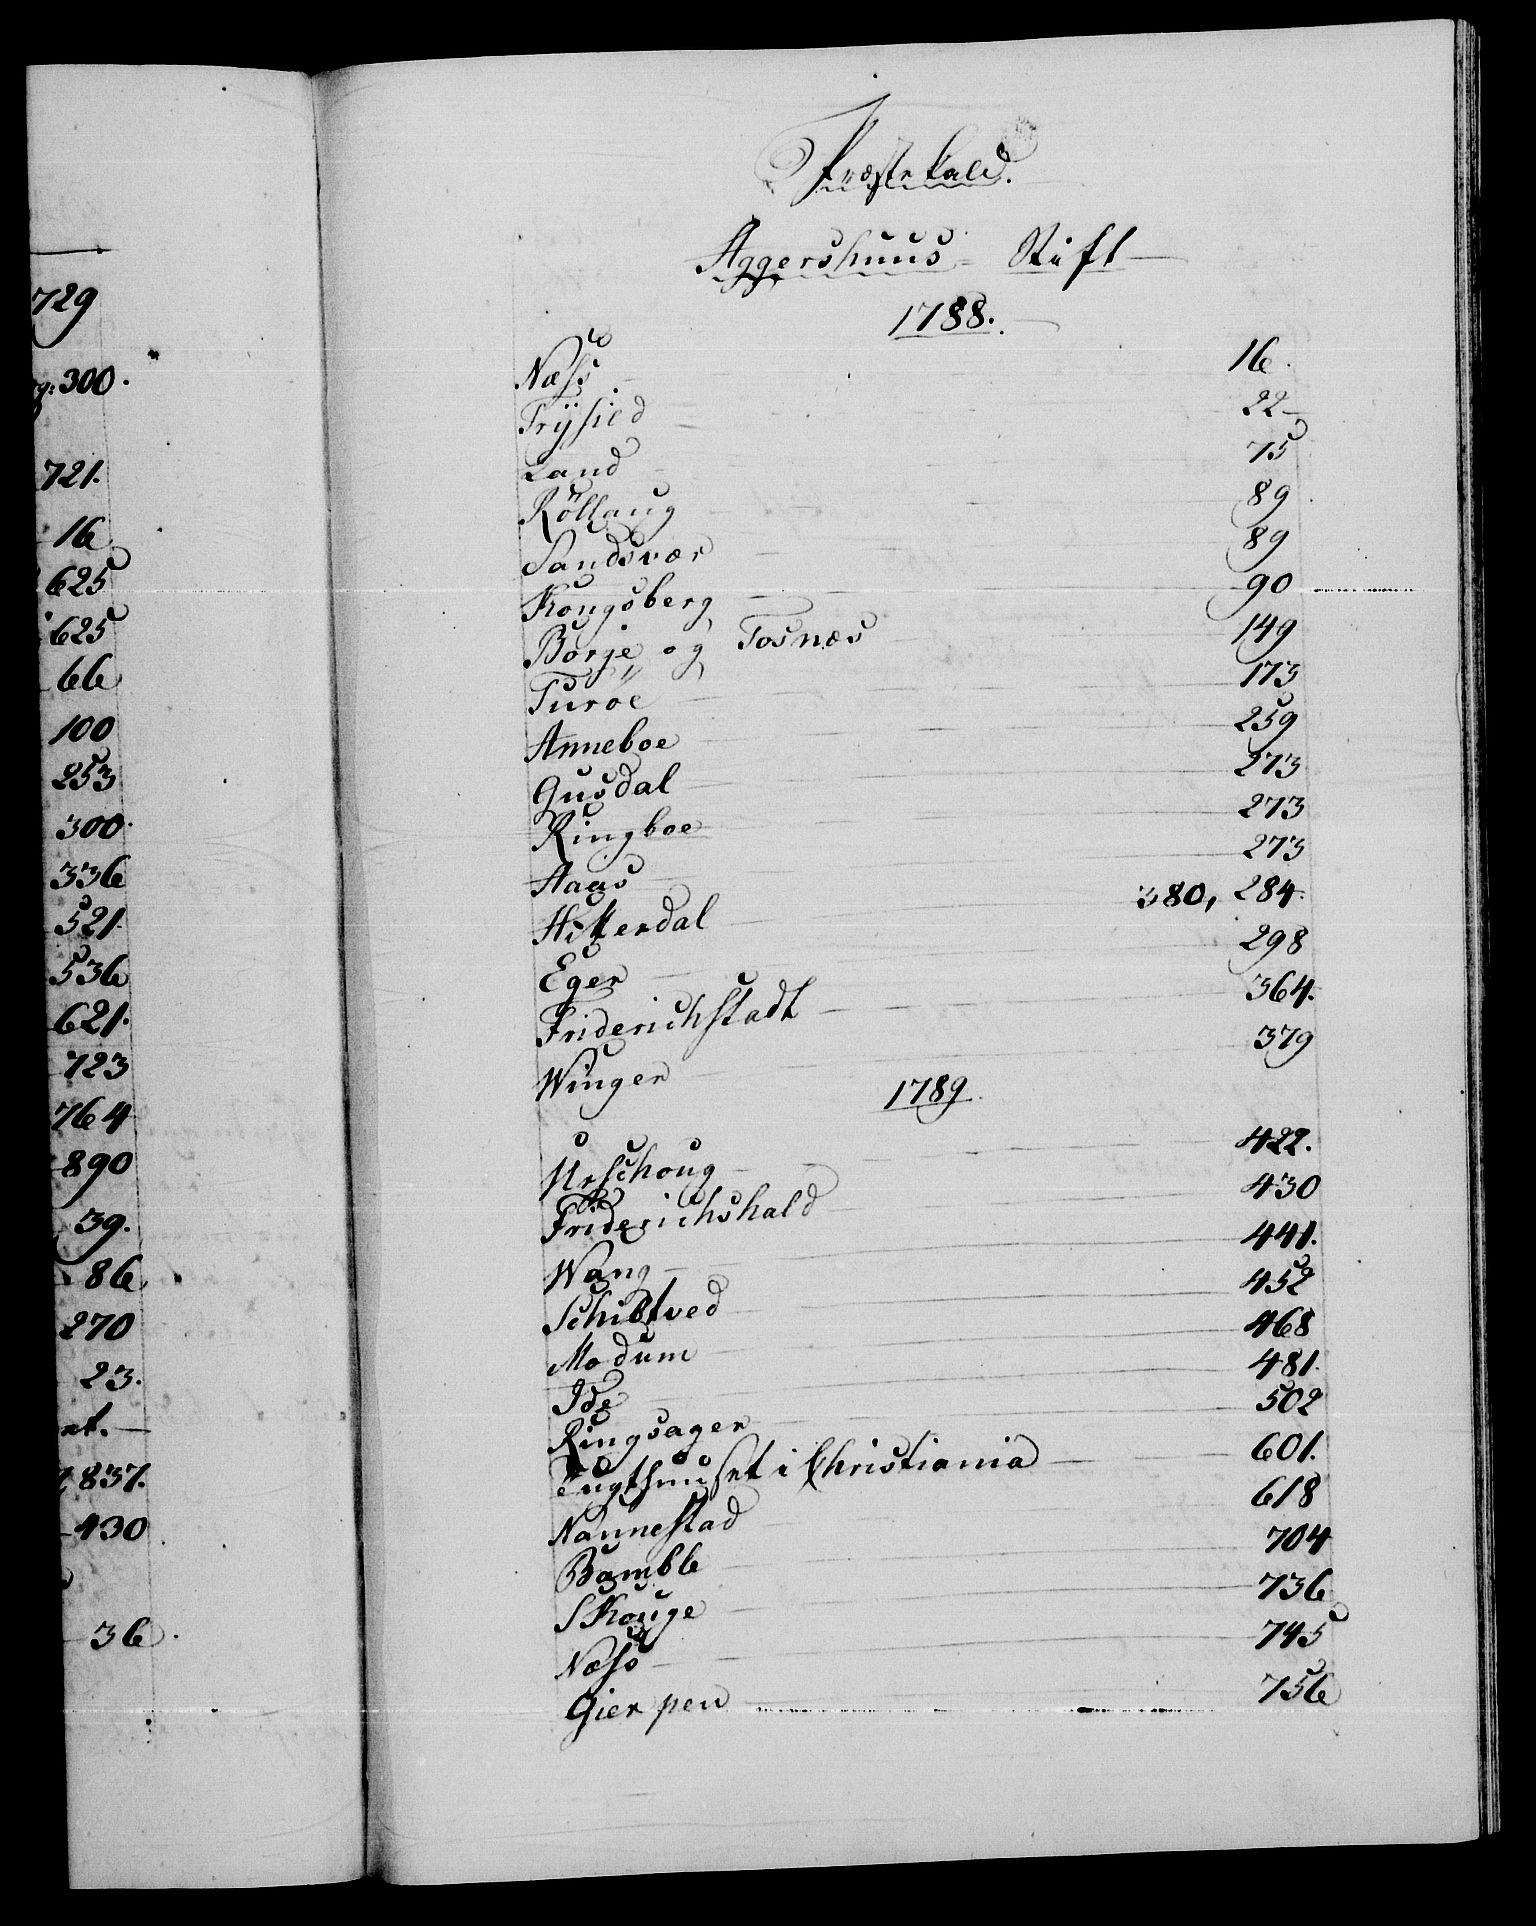 729
300.
721.
16
625
625
66
100
253
300.
336
521.
536
621.
723
764
890
39.
86
270
23.
837.
430
36.
Præstekald.
Aggershuus Stift
1788.
Næss 16.
Trÿsild 22
Land 75
Röllaug 89
Sandsvær 89
Kongsberg 90
Borge og Tosnæs 149
Turöe 173
Anneboe 259
Gusdal 273
Ringboe 273
Aaas 273
Hitterdal 380, 284.
Eger 298
Friderichstadt 364.
Winger 379
1789.
Urschoug 422.
Friderichshald 430
Wang 441.
Schibtved 452
Modum 468
Ide 481.
Ringsager 502
Tugthuuset i Christiania 601.
Nannestad 618
Bamble 704
SKouge 736
Næss 745
Gierpen 756